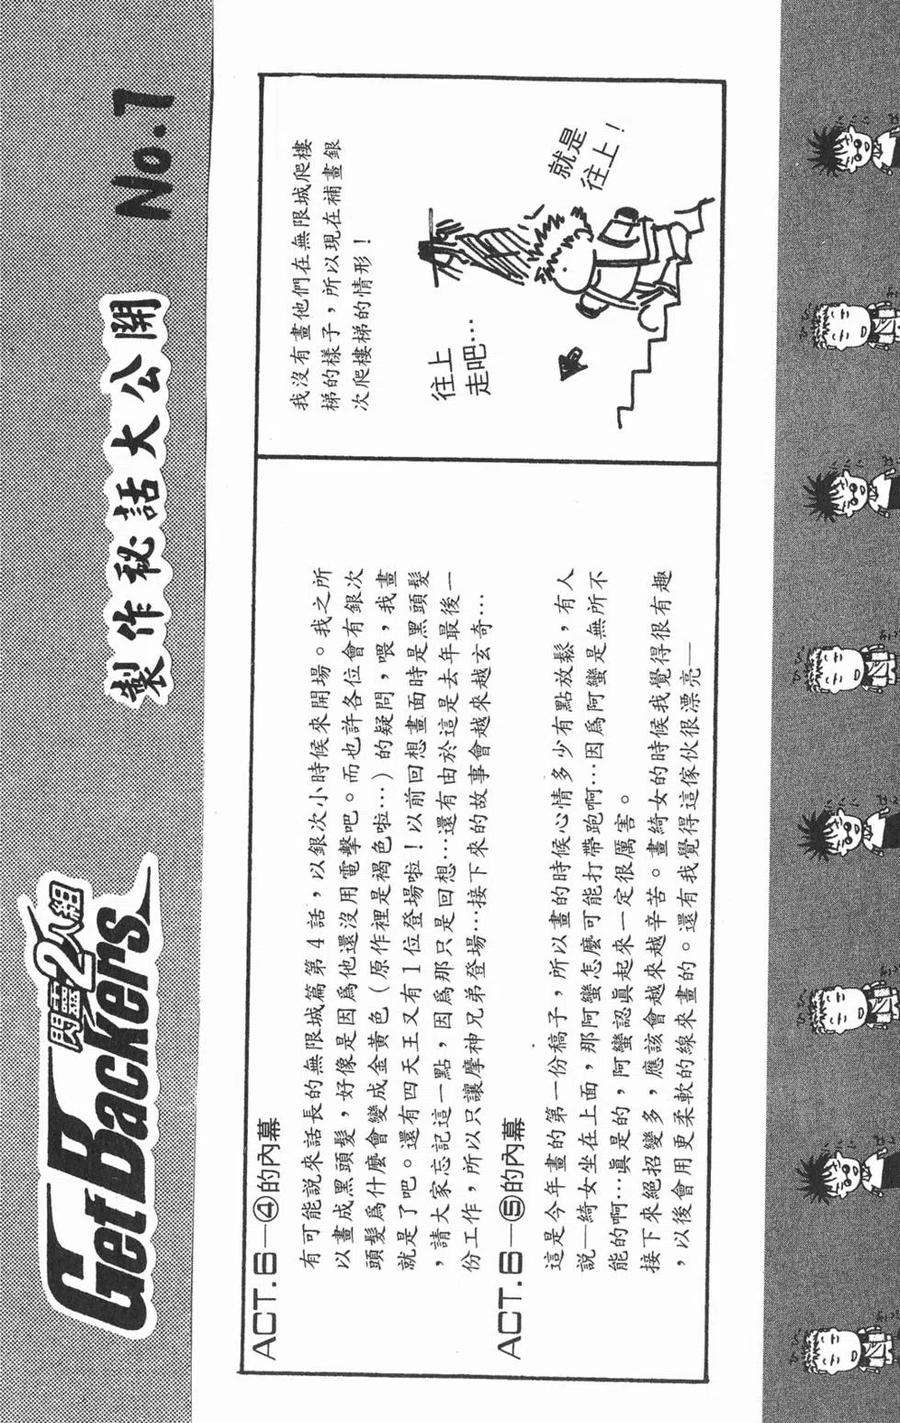 閃靈2人組
GetBackers
製作秘話大公開 No.1
ACT.6—④的內幕
有可能說來話長的無限城篇第4話，以銀次小時候來開場。我之所
以畫成黑頭髮，好像是因為他還沒用電擊吧。而也許各位會有銀次
頭髮爲什麼會變成金黃色（原作裡是褐色啦…）的疑問，喂，我畫
就是了吧。還有四天王又有1位登場啦！以前回想畫面時是黑頭髮
，請大家忘記這一點，因爲那只是回想…還有由於這是去年最後一
份工作，所以只讓摩神兄弟登場…接下來的故事會越來越玄奇…
ACT.6—⑤的內幕
這是今年畫的第一份稿子，所以畫的時候心情多少有點放鬆，有人
說—綺女坐在上面，那阿蠻怎麼可能打帶跑啊…因爲阿蠻是無所不
能的啊…真是的，阿蠻認真起來一定很厲害。
接下來絕招變多，應該會越來越辛苦。畫綺女的時候我覺得很有趣
，以後會用更柔軟的線來畫的。還有我覺得這傢伙很漂亮—
我沒有畫他們在無限城爬樓
梯的樣子，所以現在補畫銀
次爬樓梯的情形！
往上
走吧…
就是
往上！